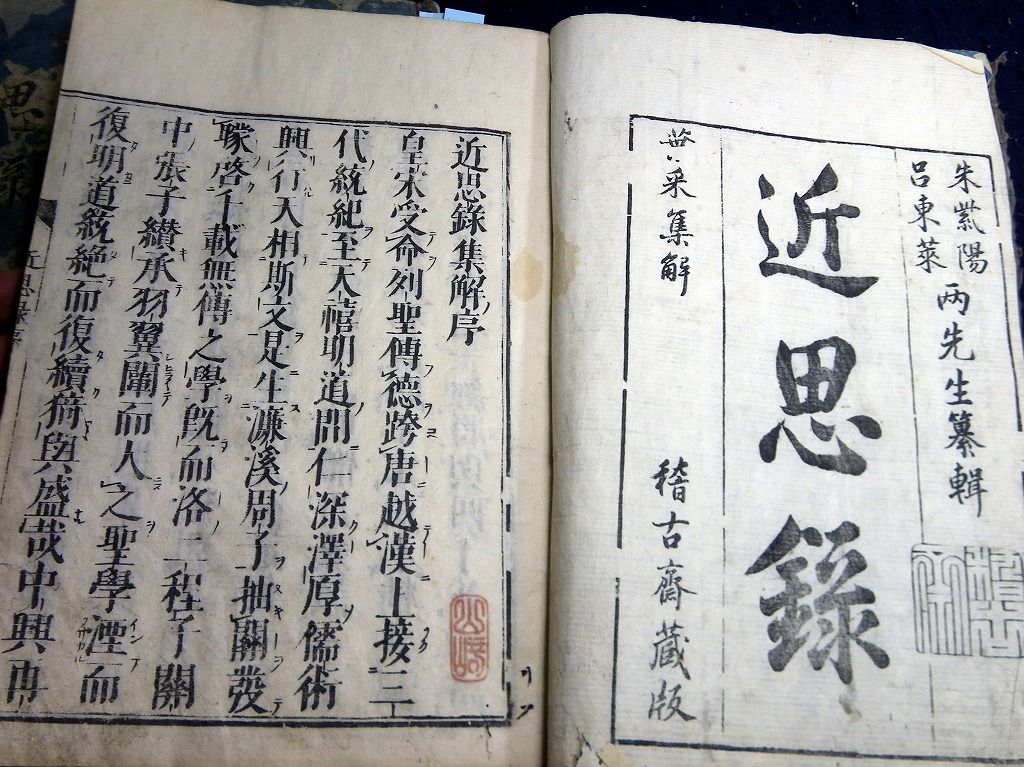 朱紫陽
呂東萊
兩先生纂輯
近思錄
葉采集解
稽古齋藏版
近思錄集解序
皇宋受命列聖傳德跨唐越漢上接三
代統紀至天禧明道間仁深澤厚儒術
興行天相斯文是生濂溪周子抽關發
矇啓千載無傳之學既而洛二程子關
中張子纘承羽翼闡而大之聖學湮而
復明道統絶而復續猗與盛哉中興再
近思錄序
思錄